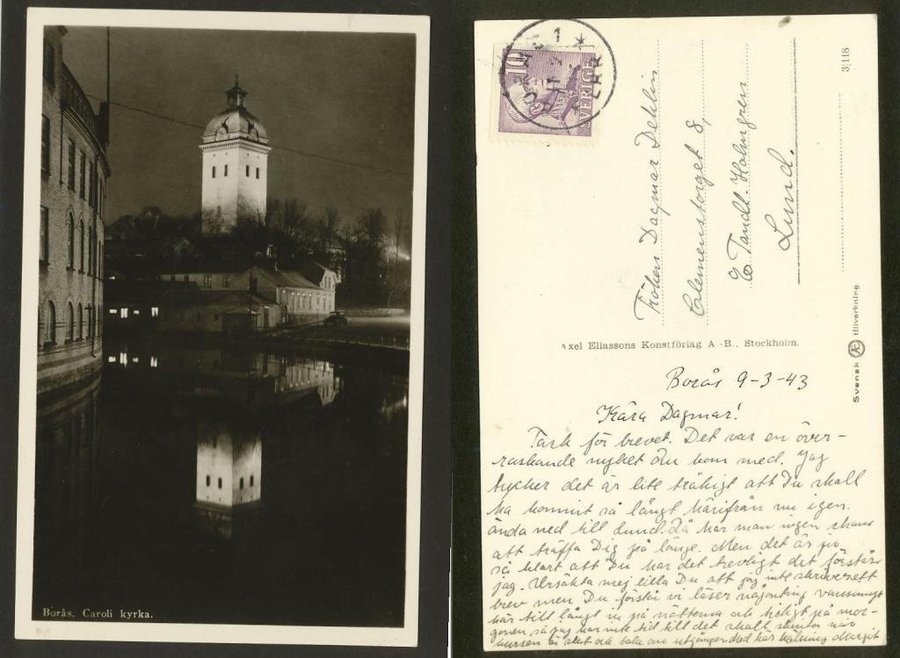 Borås. Caroli kyrka.
10
SVERIGE
3/118
Fröken Dagmar Dehlin
Clemenstorget 8,
Tandl. Holmgren
Lund.
Axel Eliassons Konstförlag A.-B., Stockholm.
Svensk Æ tillverkning
Borås 9-3-43
Kära Dagmar!
Tack för brevet. Det var en över-
raskande nyhet Du kom med. Jag
tycker det är lite tråkigt att Du skall
ha kommit så långt härifrån nu igen.
ända ned till Lund. Då har man ingen chans
att träffa Dig på länge. Men det är ju
så klart att Du har det trevligt det förstår
jag. Ursäkta mej lilla Du att jag inte skriver ett
brev men Du förstår vi läser någonting
här till långt in på nätterna och tidigt på mor-
gonen, så jag har inte tid till det skall
kursen är slut och tala om Margit